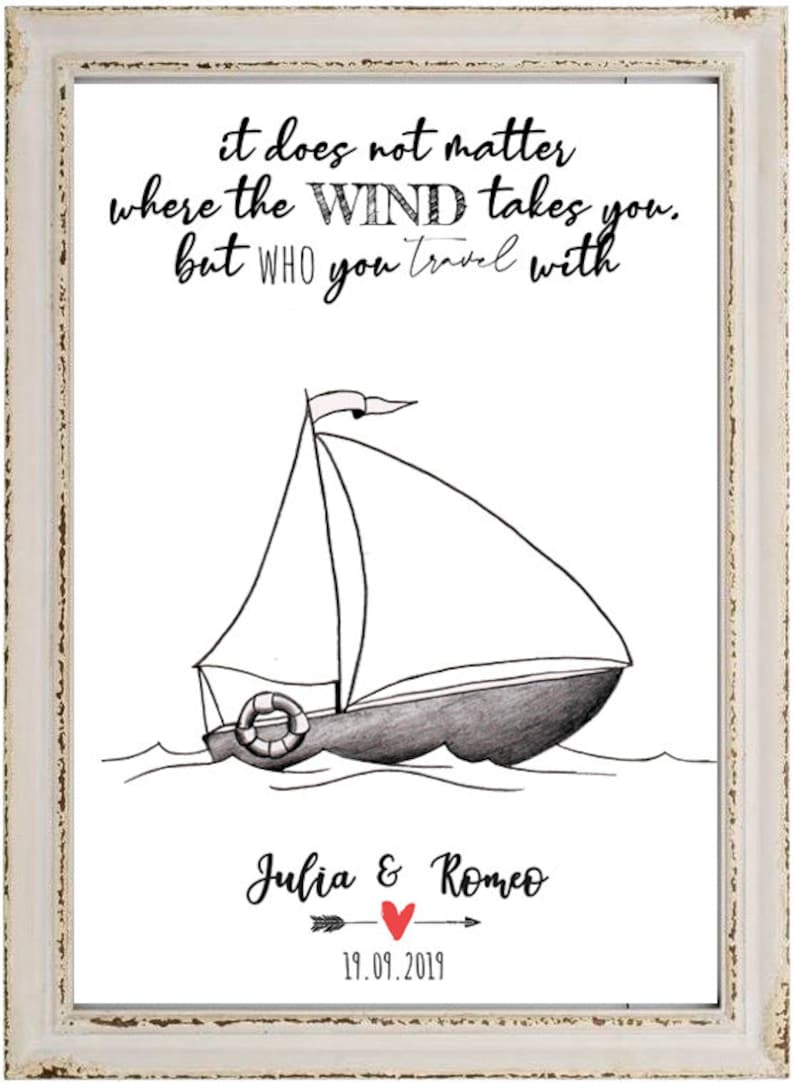 it does not matter
where the WIND takes you.
but WHO you travel with
Julia & Romeo
19.09.2019